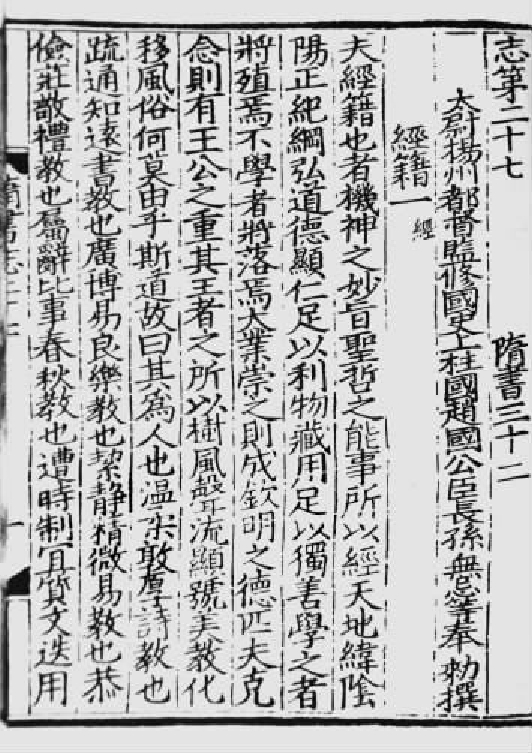 志第二十七　隋書三十二
太尉揚州都督監修國史上柱國趙國公臣長孫無忌等奉勑撰
經籍一 經
夫經籍也者機神之妙旨聖哲之能事所以經天地緯陰
陽正紀綱弘道德顯仁足以利物藏用足以獨善學之者
將殖焉不學者將落焉大業崇之則成欽明之德匹夫克
念則有王公之重其王者之所以樹風聲流顯號美教化
移風俗何莫由乎斯道故曰其為人也温柔敦厚詩教也
疏通知遠書教也廣博易良樂教也絜静精微易教也恭
儉莊敬禮教也屬辭比事春秋教也遭時制宜質文迭用